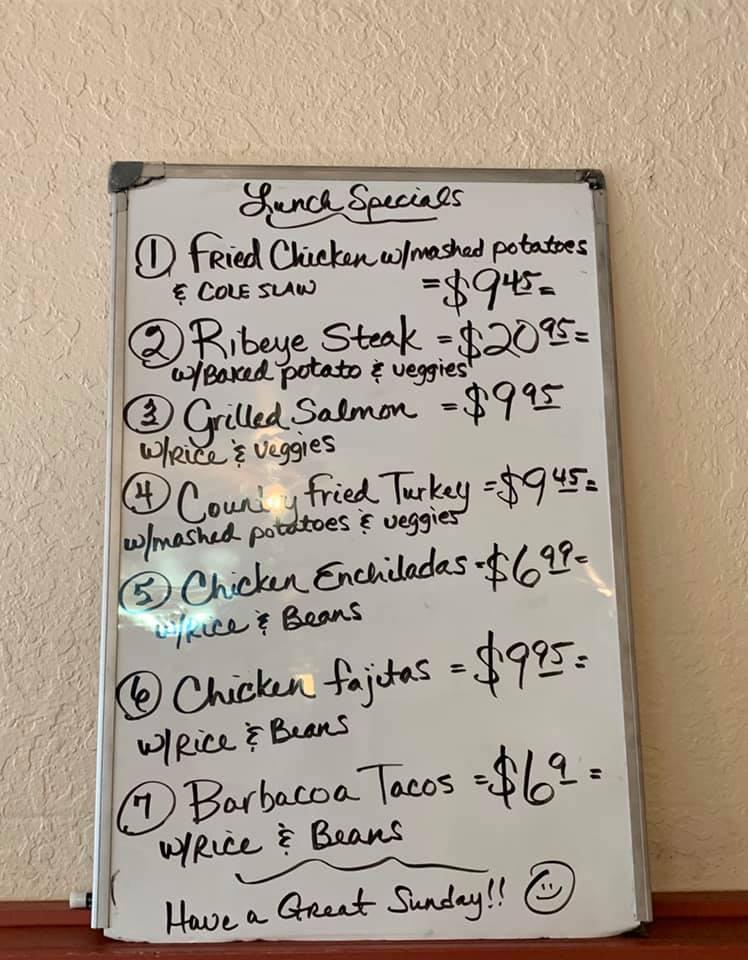 Lunch Specials
① Fried Chicken w/mashed potatoes
& COLE SLAW = $9.45 =
② Ribeye Steak = $20.95 =
w/Baked potato & veggies
③ Grilled Salmon = $9.95
w/Rice & veggies
④ Country fried Turkey = $9.45 =
w/mashed potatoes & veggies
⑤ Chicken Enchiladas - $6.99 =
w/Rice & Beans
⑥ Chicken fajitas = $9.95 =
w/Rice & Beans
⑦ Barbacoa Tacos = $6.9 =
w/Rice & Beans
Have a Great Sunday!!